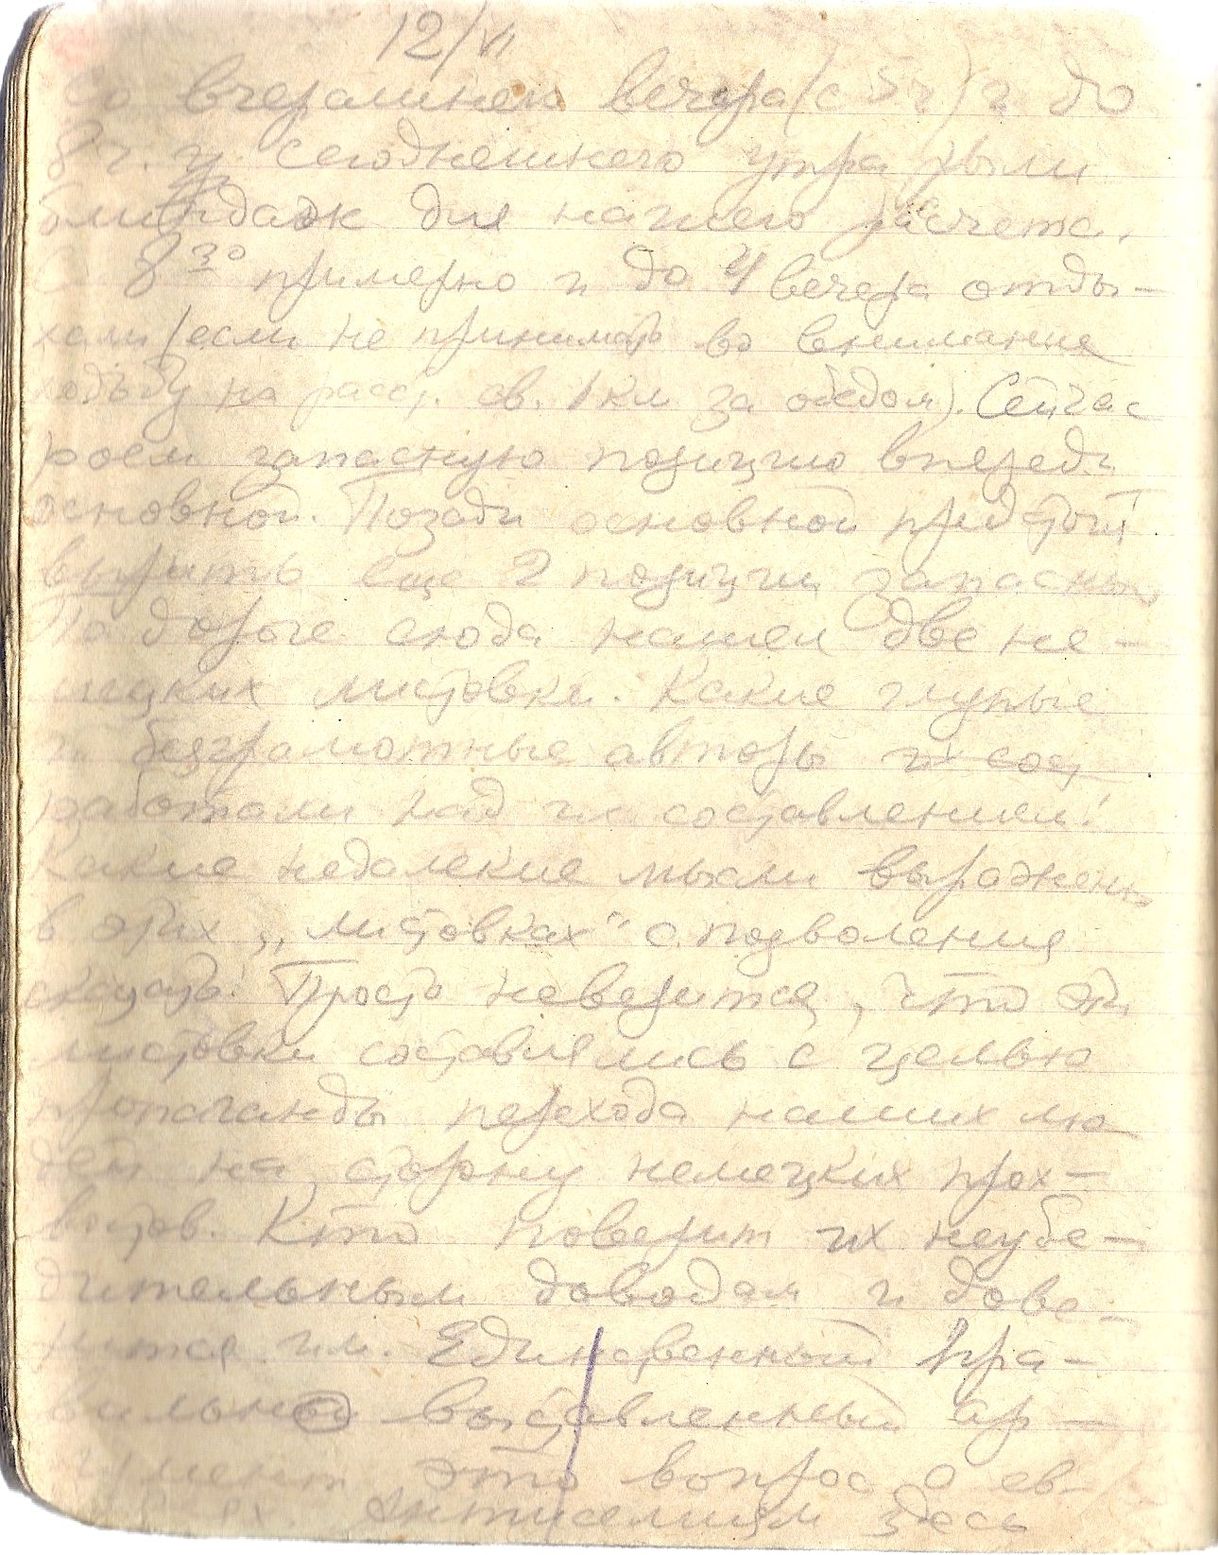 12/VI
Со вчерашнего вечера (с 5 ч) и до
8 ч. у. сегоднешнего утра рыли
блиндаж для нашего расчета.
С 8 30 примерно и до 4 вечера отды-
хали (если не принимать во внимание
ходьбу на расст. св. 1 км за обедом). Сейчас
роем запасную позицию впереди
основной. Позади основной предстоит
вырыть еще 2 позиции запасных
По дороге сюда нашел две не-
мецких листовки. Какие глупые
и безграмотные авторы и сос
работали над их составлением!
Какие недалекие мысли выражены
в этих „листовках" с позволения
сказать! Просто неверится, что эти
листовки составлялись с целью
пропаганды перехода наших лю
дей на сторону немецких прох-
востов. Кто поверит их неубе-
дительным доводам и дове-
рится им. Единственный пра-
вильно выставленный ар-
гумент это вопрос о ев-
реях. Антисемизм здесь